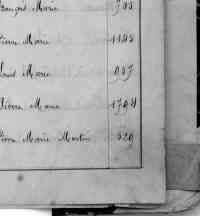 François Marie 735
Pierre Marie 1145
Louis Marie 957
Pierre Marie 1794
Pierre Marie Martin 529